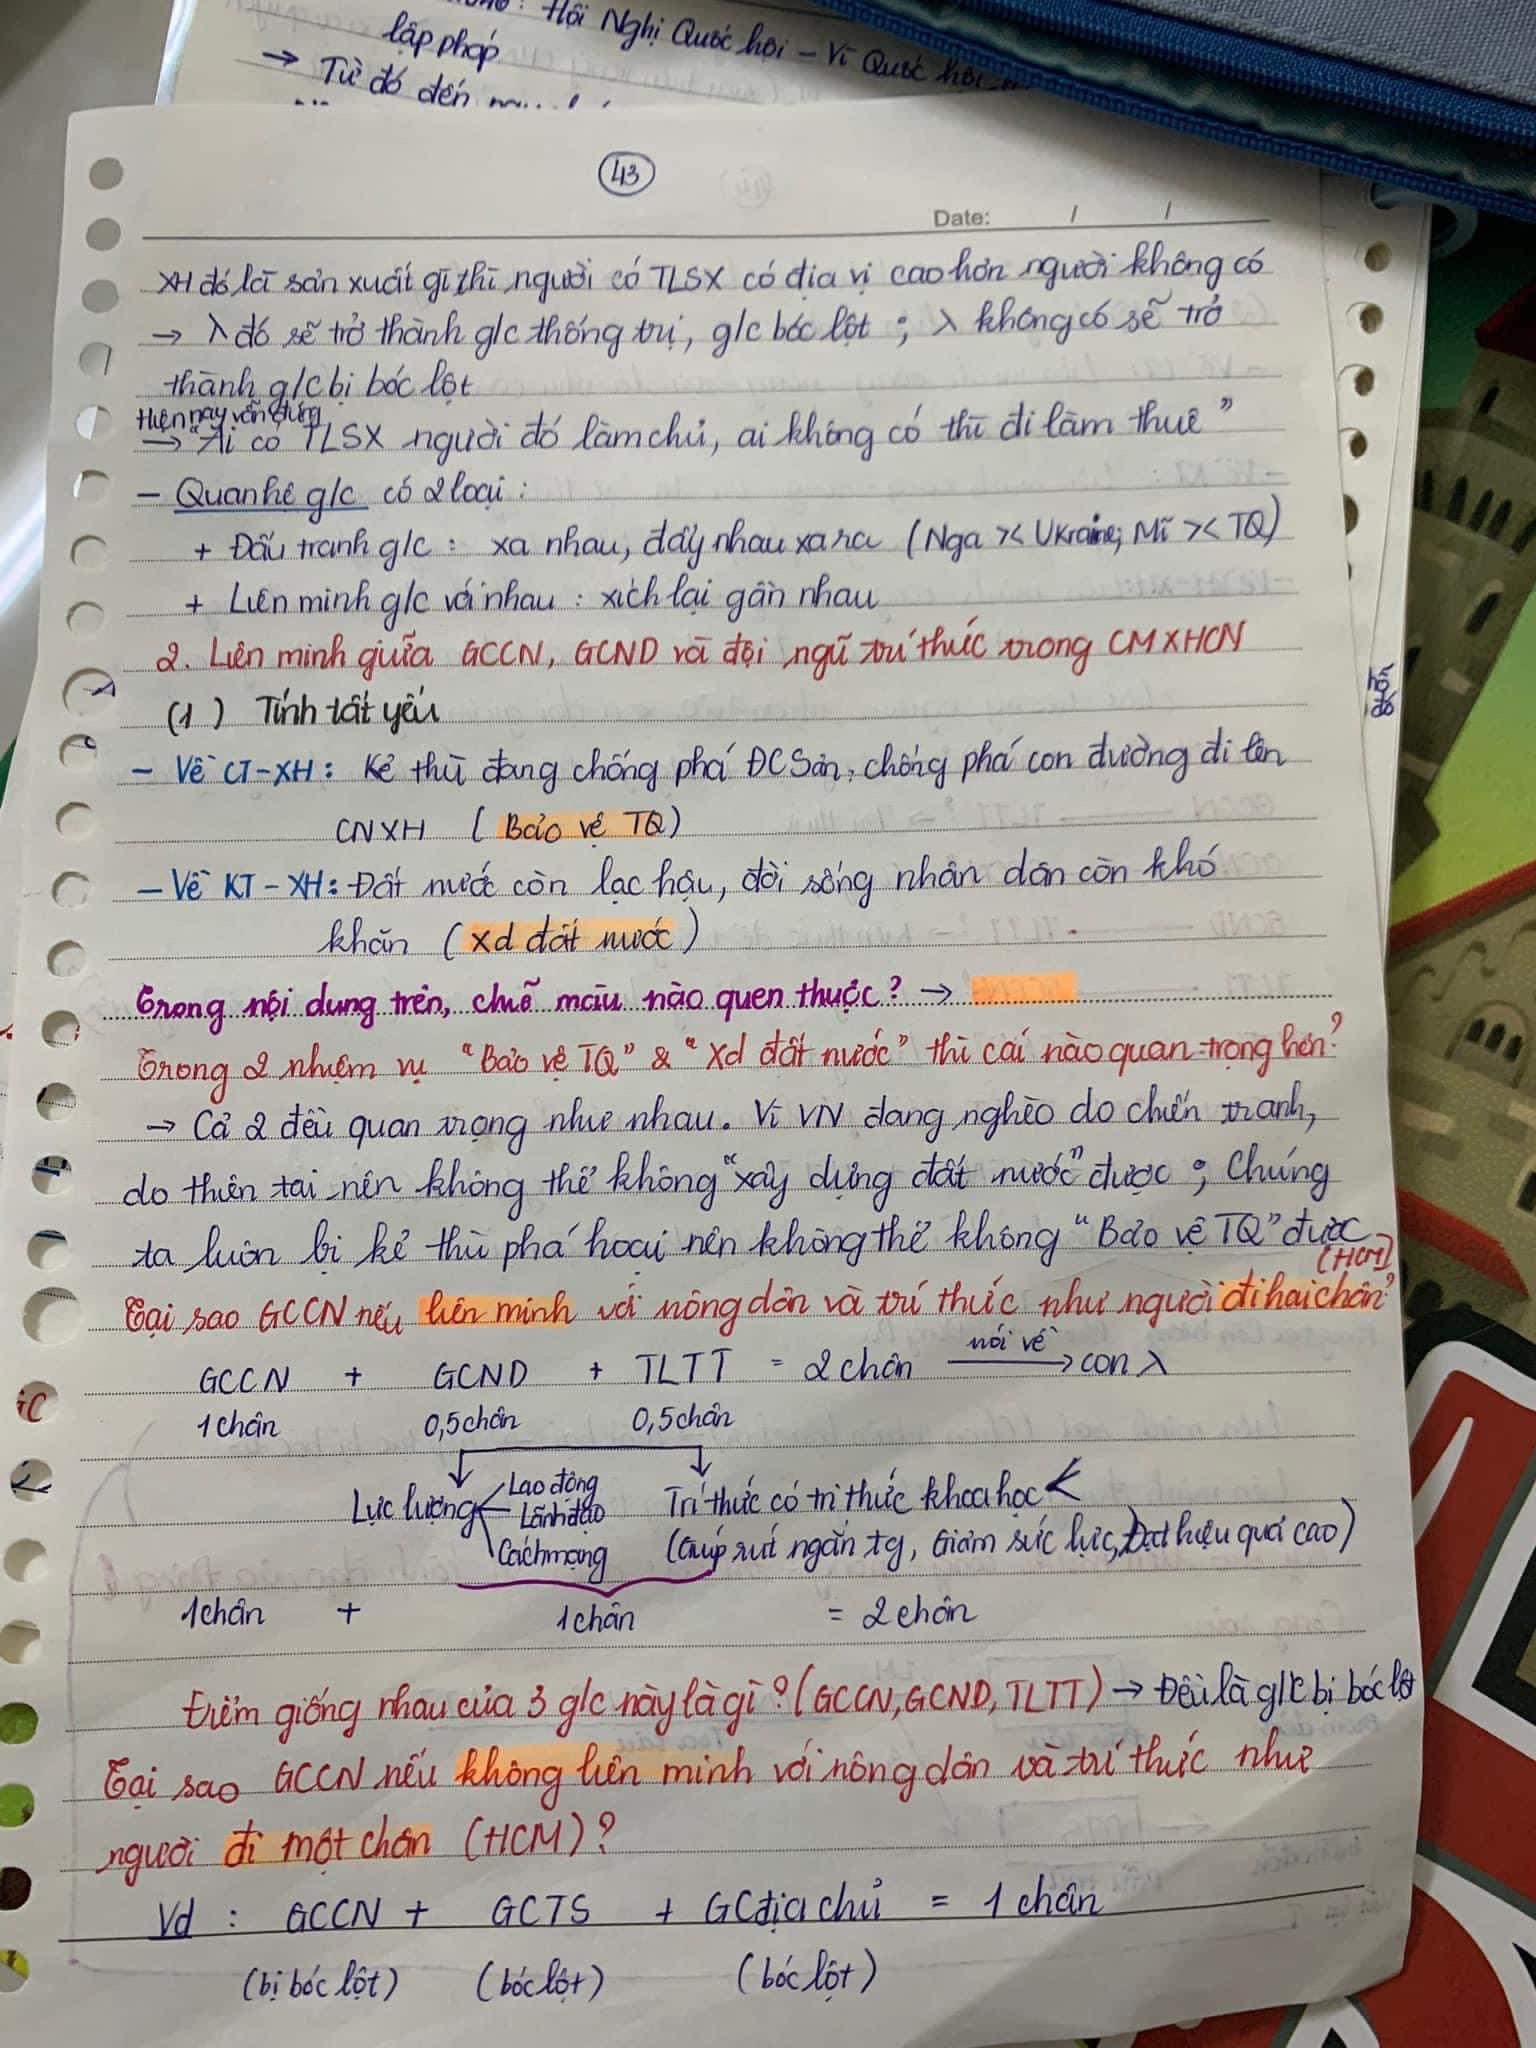 Hội Nghị Quốc hội - Vì Quốc hội
lập pháp
→ Từ đó đến
43
Date: / /
XH đó là sản xuất gì thì người có TLSX có địa vị cao hơn người không có
→ λ đó sẽ trở thành g/c thống trị, g/c bóc lột ; λ không có sẽ trở
thành g/c bị bóc lột
Hiện nay vẫn đúng
→ "Ai có TLSX người đó làm chủ, ai không có thì đi làm thuê"
- Quan hệ g/c có 2 loại :
+ Đấu tranh g/c : xa nhau, đẩy nhau xa ra (Nga >< Ukraine; Mĩ >< TQ)
+ Liên minh g/c với nhau : xích lại gần nhau
2. Liên minh giữa GCCN, GCND và đội ngũ trí thức trong CMXHCN
hồ
đó
(1) Tính tất yếu
- Về CT-XH: Kẻ thù đang chống phá ĐCSản, chống phá con đường đi lên
CNXH (Bảo vệ TQ)
- Về KT-XH: Đất nước còn lạc hậu, đời sống nhân dân còn khó
khăn (xd đất nước)
Trong nội dung trên, chỗ màu nào quen thuộc? →
Trong 2 nhiệm vụ "Bảo vệ TQ" & "Xd đất nước" thì cái nào quan trọng hơn?
→ Cả 2 đều quan trọng như nhau. Vì VN đang nghèo do chiến tranh,
do thiên tai nên không thể không "xây dựng đất nước" được ; Chúng
ta luôn bị kẻ thù phá hoại nên không thể không "Bảo vệ TQ" được
(HCM)
Tại sao GCCN nếu liên minh với nông dân và trí thức như người đi hai chân?
GCCN + GCND + TLTT = 2 chân nói về → con λ
1 chân 0,5 chân 0,5 chân
GC
Lực lượng Lao động Lãnh đạo Cách mạng
Trí thức có tri thức khoa học <
(Giúp rút ngắn tg, Giảm sức lực, Đạt hiệu quả cao)
1 chân + 1 chân = 2 chân
Điểm giống nhau của 3 g/c này là gì? (GCCN, GCND, TLTT) → Đều là g/c bị bóc lột
Tại sao GCCN nếu không liên minh với nông dân và trí thức như
người đi một chân (HCM)?
Vd : GCCN + GCTS + GC địa chủ = 1 chân
(bị bóc lột) (bóc lột) (bóc lột)